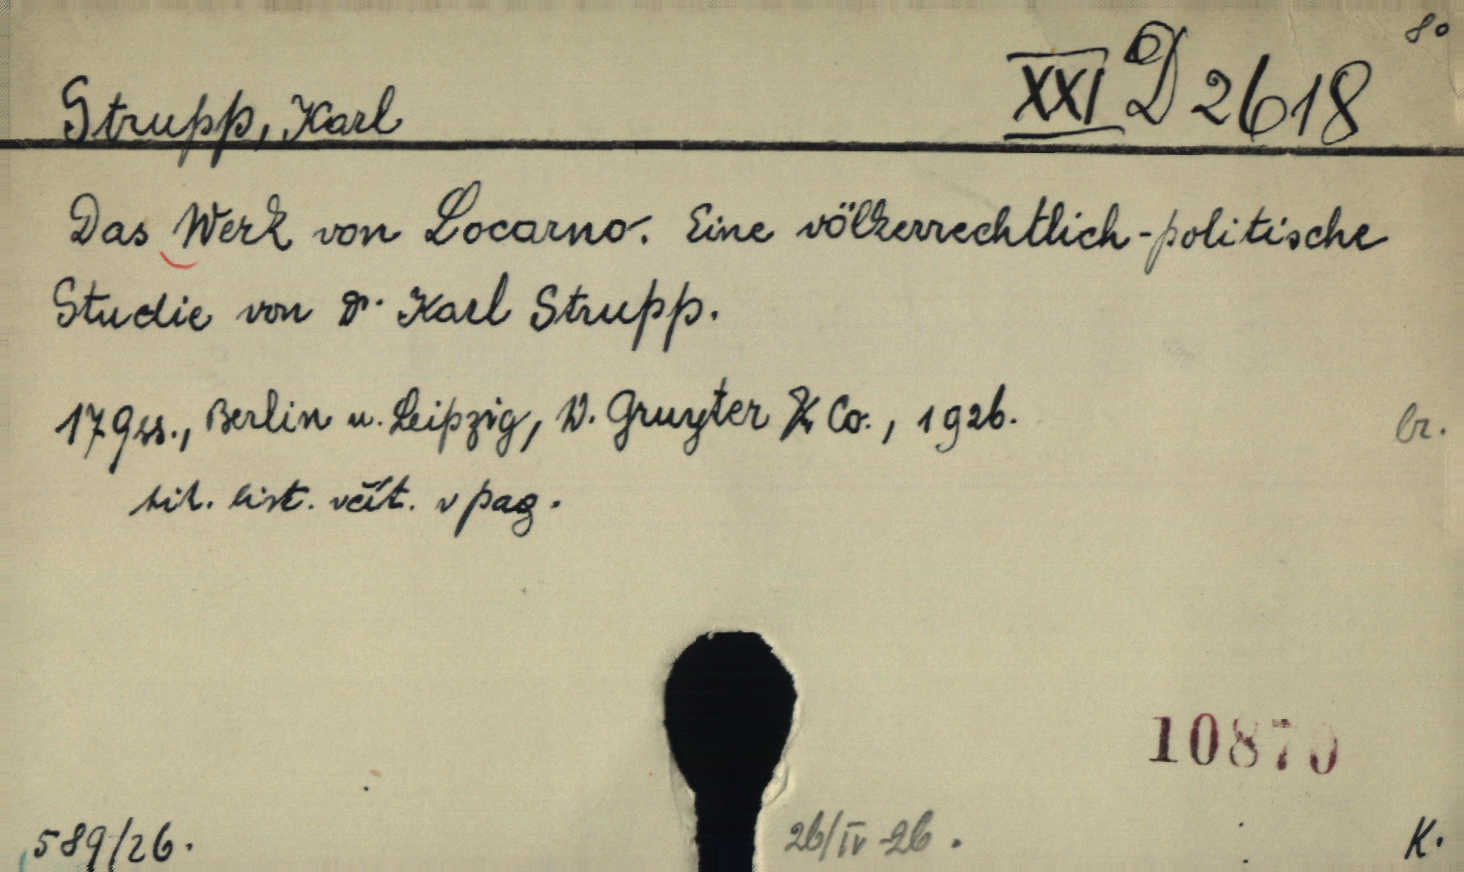 8°
Strupp, Karl XXI D 2618
Das Werk von Locarno. Eine völkerrechtlich-politische
Studie von Dr. Karl Strupp.
179 ss., Berlin u. Leipzig, W. Gruyter & Co., 1926. br.
tit. list. včít. v pag.
10870
589/26. 26/IV 26. K.